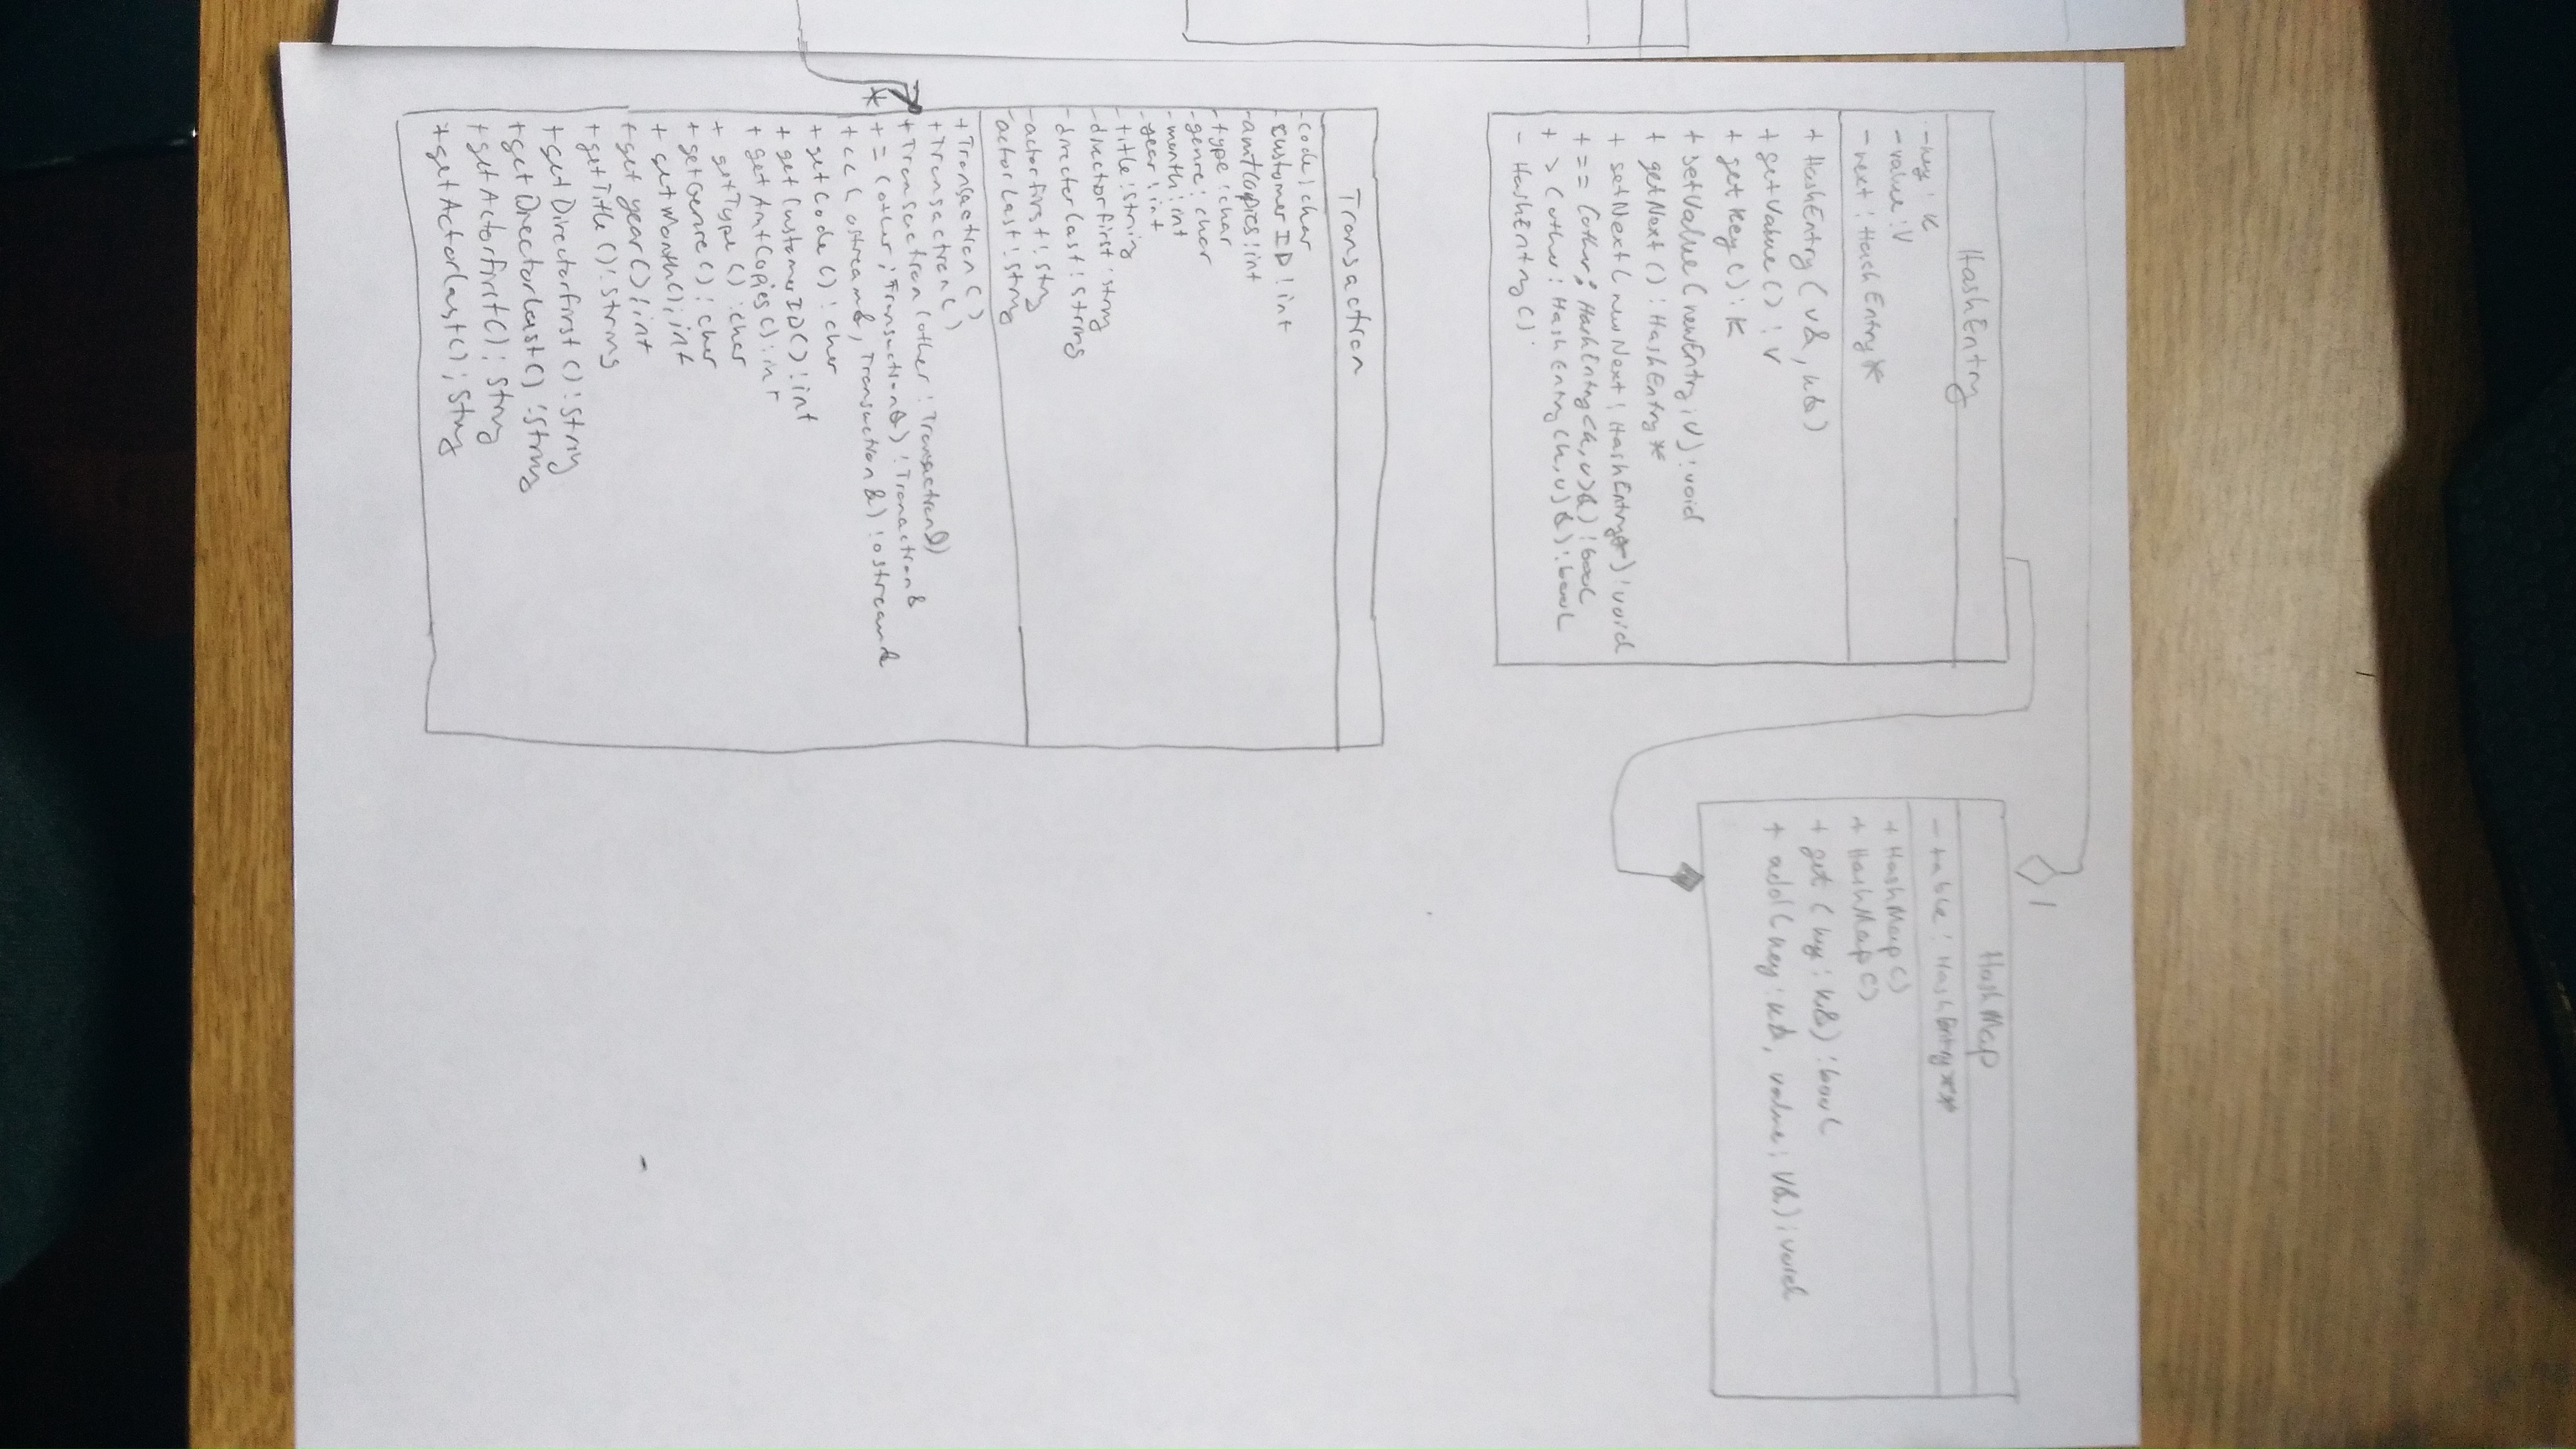 HashEntry
- key : K
- value : V
- next : HashEntry*
+ HashEntry (v&, k&)
+ getValue () : V
+ getKey () : K
+ setValue (newEntry : V) : void
+ getNext () : HashEntry*
+ setNext (newNext : HashEntry*) : void
+ == (other : HashEntry<k,v>&) : bool
+ > (other : HashEntry<k,v>&) : bool
- HashEntry ()
HashMap
- table : HashEntry**
+ HashMap()
+ HashMap()
+ get (key : K&) : bool
+ add (key : K&, value : V&) : void
1
Transaction
-code : char
-customerID : int
-amtCopies : int
-type : char
-genre : char
-month : int
-year : int
-title : string
-directorfirst : string
-directorlast : string
-actorfirst : string
-actorlast : string
+Transaction()
+Transaction()
+Transaction (other : Transaction&)
+ = (other : Transaction&) : Transaction&
+ << (ostream&, Transaction&) : ostream&
+ getCode () : char
+ getCustomerID () : int
+ getAmtCopies () : int
+ getType () : char
+ getGenre () : char
+ getMonth() : int
+ getyear() : int
+ getTitle () : String
+ getDirectorfirst () : String
+getDirectorlast() : String
+getActorfirst() : String
+getActorlast() : String
*